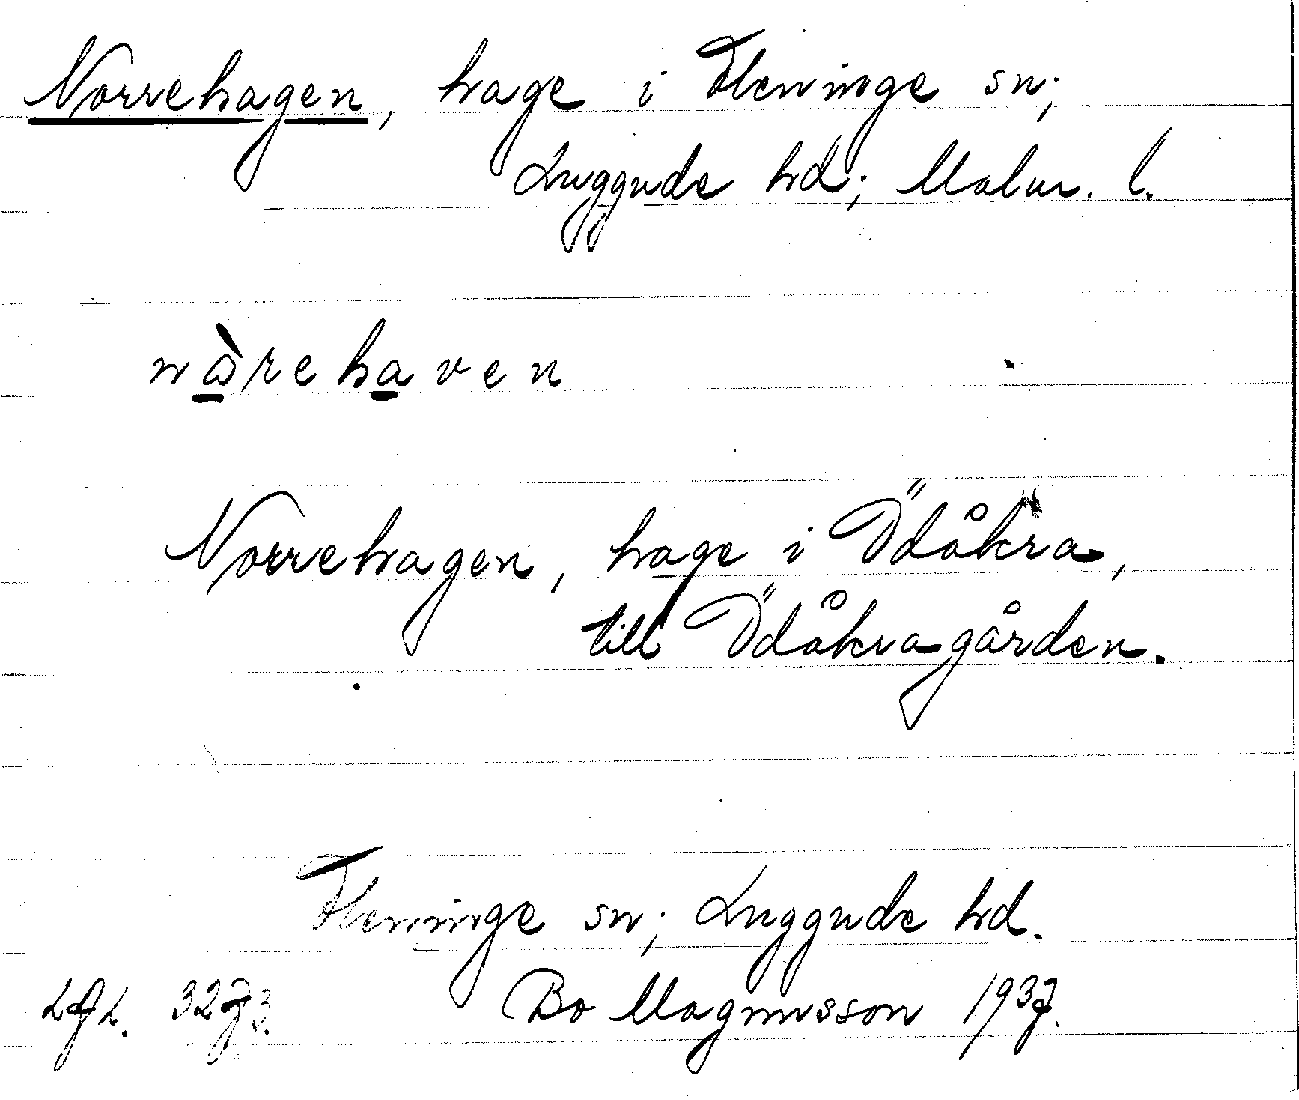 Norrehagen, hage i Fleninge sn;
Luggude hd; Malm. l.
nàrehaven
Norrehagen, hage i Ödåkra,
till Ödåkragården.
Fleninge sn; Luggude hd.
Bo Magnusson 1937.